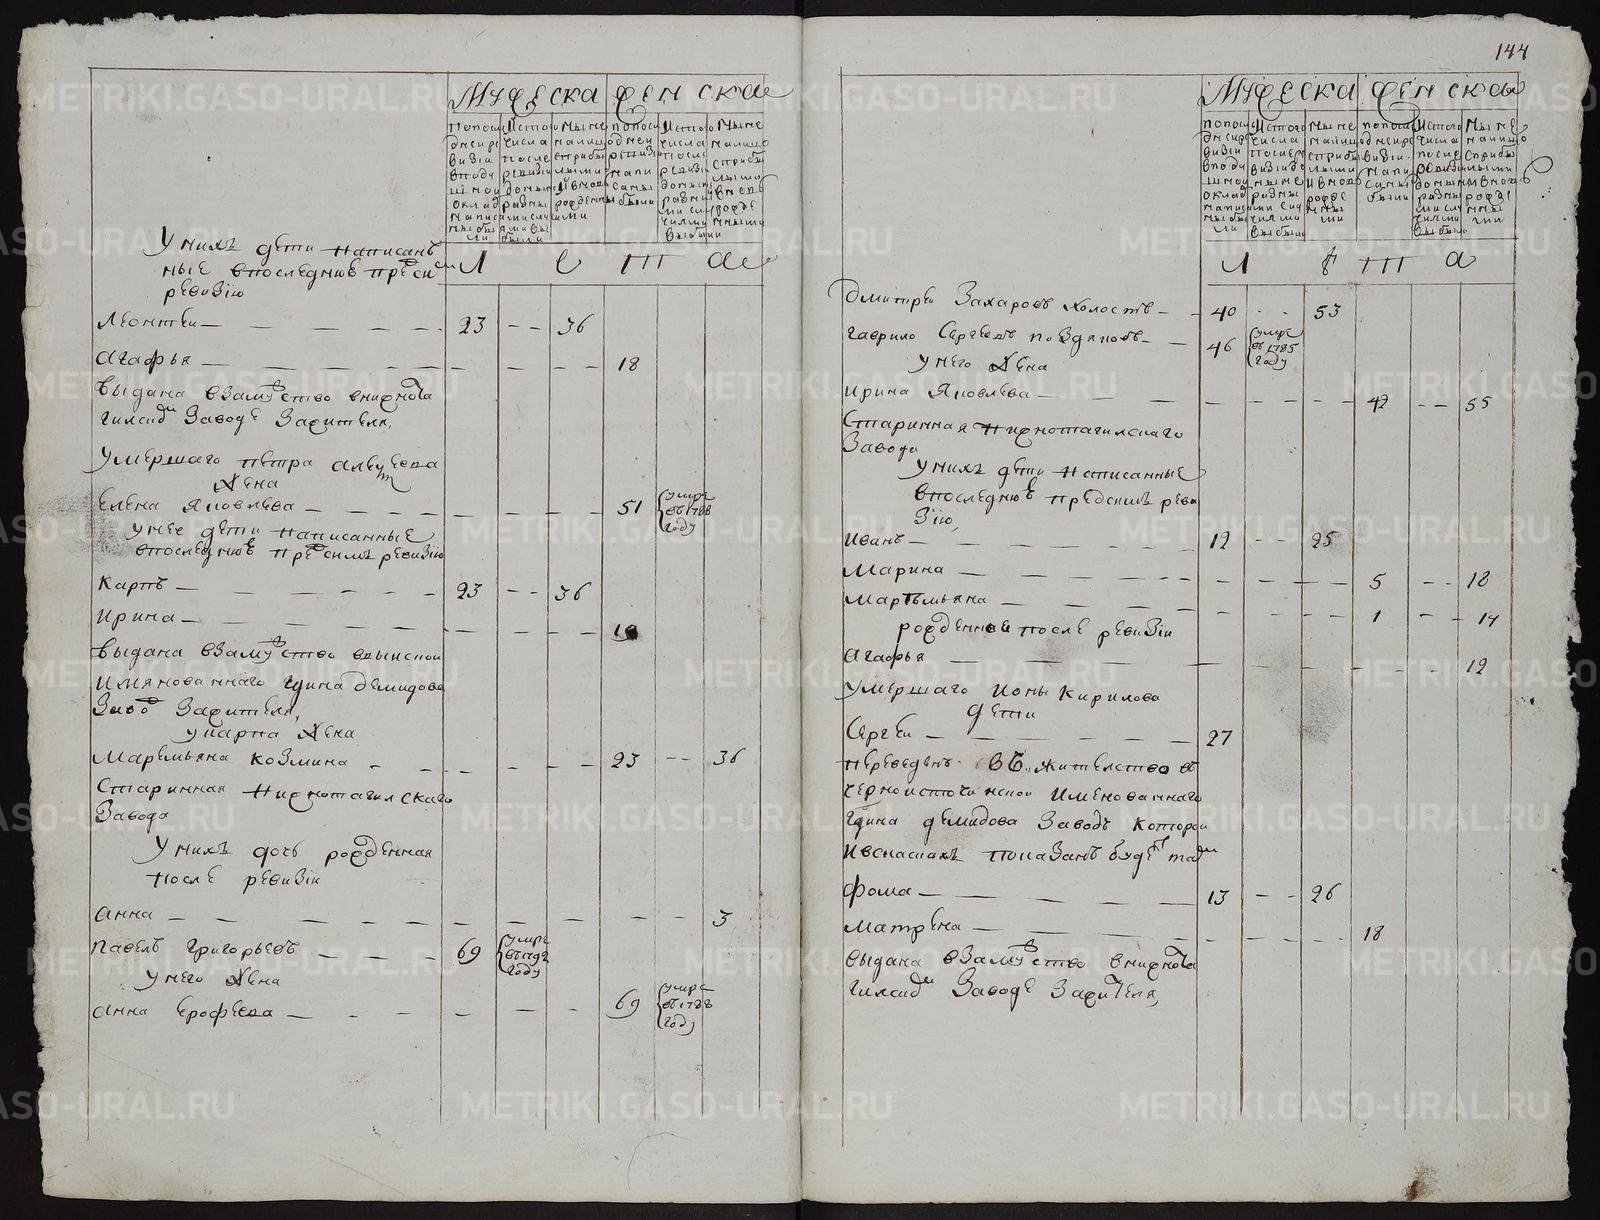 144
Мужеска женска
Попоследней ревизии вподушной оклад написаны были
Истого числа после ревизии до ныне разными случаями выбыли
Ныне налицо сприбылыми и вновь рожденными
попоследней ревизии написаны были
Истого числа после ревизии до ныне разными случаями выбыли
Ныне налицо сприбылыми и вновь рожденными
Л е т а
У нихъ дети написан
ные впоследнюю пред сим
ревизию
Леонтеи — 23 - - 36
Агафья — 18
выдана взамужство внижнота
гилском Заводе Зажителя,
умершаго петра алексеева
жена
Елена Яковлева — 51 умре в 1788 году
у нее дети написанные
впоследнюю пред симъ ревизию
Карпъ — 23 - - 36
Ирина — 19
выдана взамужство выйской
Имянованнаго Гдина демидова
Завод Зажителя,
у карпа жена
Маремьяна козмина — 23 - - 36
Старинная Нижнотагилскаго
Завода
У нихъ дочь рожденная
после ревизии
анна — 3
павелъ григорьевъ — 69 умре в 1792 году
у него жена
анна ерофеева — 69 умре в 1788 году
Мужеска женска
попоследней ревизии вподушной оклад написаны были
Истого числа после ревизии до ныне разными случаями выбыли
Ныне налицо сприбылыми и вновь рожденными
попоследней ревизии написаны были
Истого числа после ревизии до ныне разными случаями выбыли
Ныне налицо сприбылыми и вновь рожденными
Л е т а
Дмитреи Захаровъ холостъ — 40 - - 53
гаврило Сергеевъ поздяковъ — 46 умре в 1785 году
у него жена
ирина Яковлева — 42 - - 55
Старинная Нижнотагилскаго
Завода
у нихъ дети написанные
впоследнюю предсимъ реви
Зию,
Иванъ — 12 - - 25
Марина — 5 - - 18
Мартемьяна — 1 - - 14
рожденная после ревизии
агафья — 12
умершаго Ионы Кирилова
дети
Сергеи — 27
переведенъ въ жителство въ
черноисточинской Именованнаго
Гдина демидова Заводъ которои
И в сказкахъ показанъ будет тамъ
фома — 13 - - 26
Матрена — 18
выдана взамужство внижнота
гилском Заводе Зажителя,